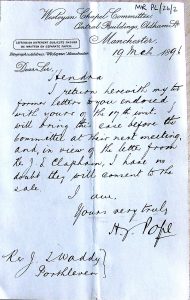 MR PL/26/2
Wesleyan Chapel Committee,
Central Buildings, Oldham St.
Manchester
LETTERS ON DIFFERENT SUBJECTS SHOULD
BE WRITTEN ON SEPARATE PAPER.
Telegraphic Address, "Wesleyan" Manchester.
19 Mch. 189
Dear Sir,
Hendra
I return herewith my two
former letters to you endorsed
with yours of the 17th inst. I
will bring this case before the
Committee at their next meeting,
and, in view of the letter from
Rev. J. E. Clapham, I have no
doubt they will consent to the
sale.
I am,
Yours very truly
Pope
Rev. J. T. Waddy
Porthleven